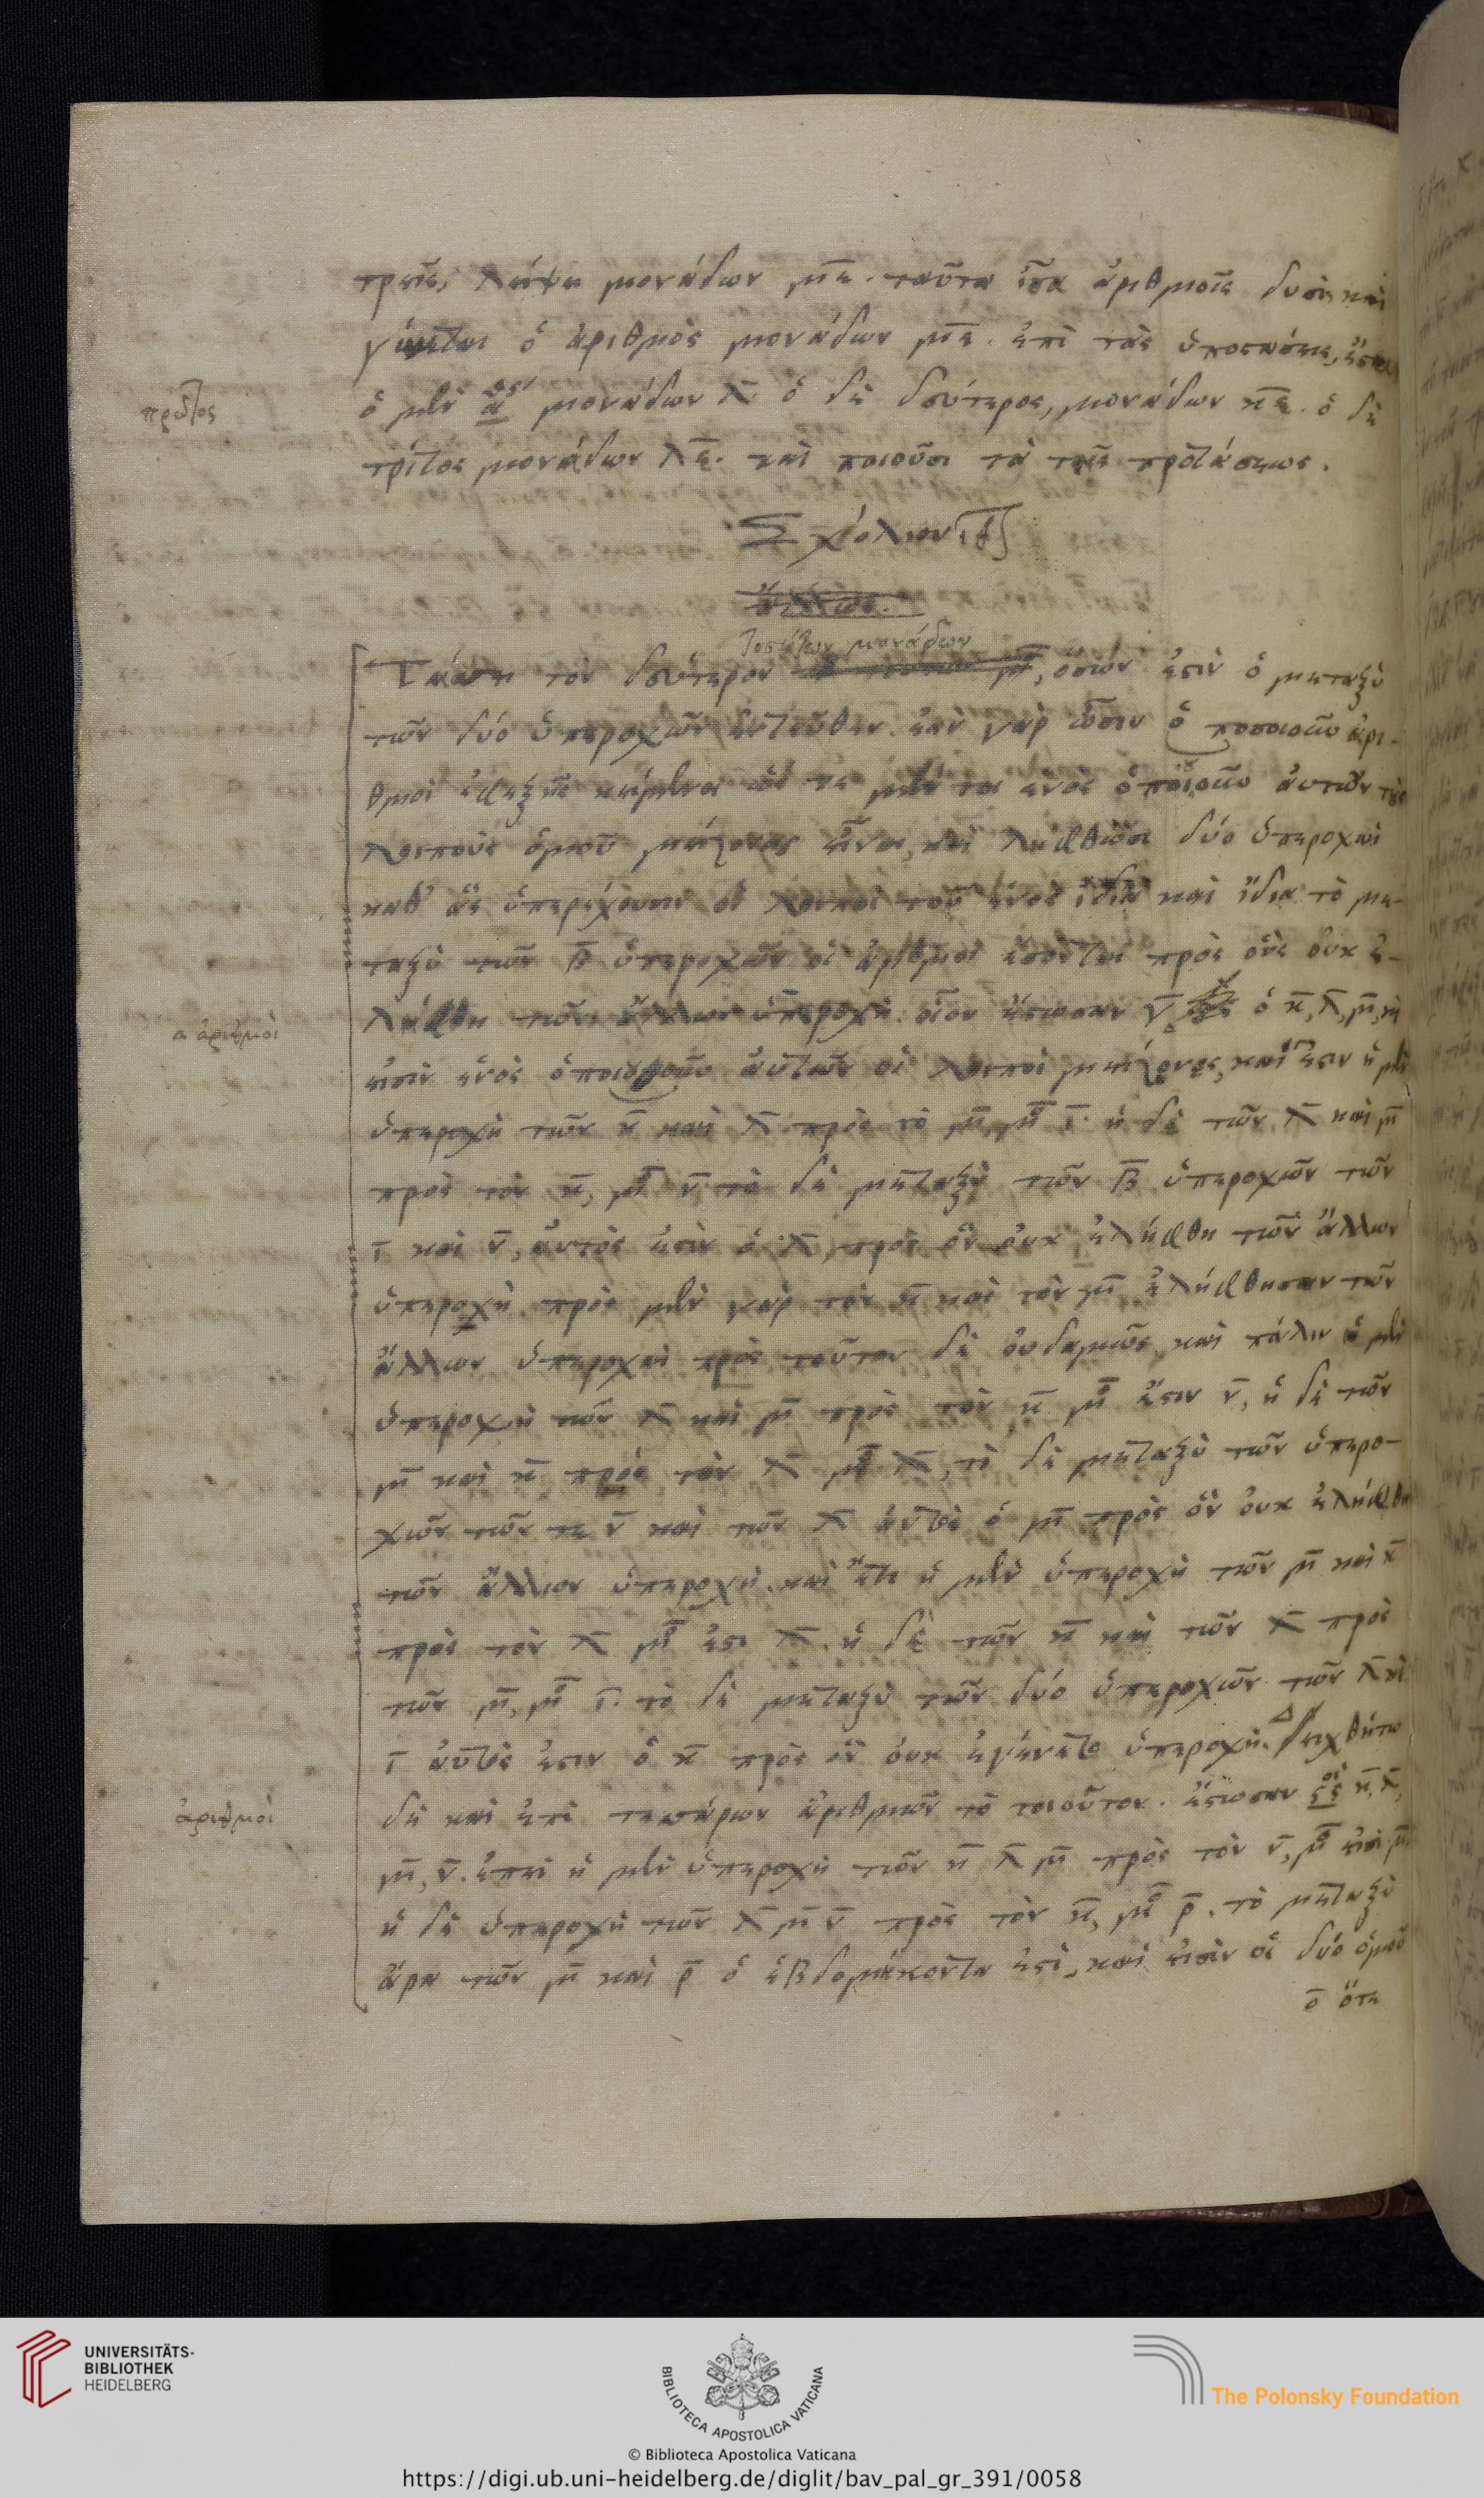 τρεῖς, λείψει μονάδων με̅. ταῦτα ἴσα ἀριθμοῖς δυσὶ, καὶ
γίνεται ὁ ἀριθμὸς μονάδων με̅. ἐπὶ τὰς ὑποστάσεις, ἔσται
πρῶτος
ὁ μὲν α^ος μονάδων λ̅ ὁ δὲ δεύτερος, μονάδων κε̅. ὁ δὲ
τρίτος μονάδων λε̅. καὶ ποιοῦσι τὰ τῆς προτάσεως.
Σχόλιον ιβ
ἄλλως.
τοσούτων μονάδων
Τάττει τὸν δεύτερον μ̅, ὅσων ἐστὶν ὁ μεταξὺ
τῶν δύο ὑπεροχῶν ἐντεῦθεν. ἐὰν γὰρ ὦσιν ὁποσοιοῦν ἀρι-
θμοὶ ἐφεξῆς κείμενοι ὥς τε μέντοι ἑνὸς ὁποιουοῦν αὐτῶν τοὺς
λοιποὺς ὁμοῦ μείζονας εἶναι, καὶ ληφθῶσι δύο ὑπεροχαὶ
καθ' ἃς ὑπερέχουσιν οἱ λοιποὶ τοῦ ἑνὸς ἰδίᾳ καὶ ἰδίᾳ τὸ με-
ταξὺ τῶν β̅ ὑπεροχῶν οἱ ἀριθμοὶ ἔσονται πρὸς οὓς οὐκ ἐ-
οἱ ἀριθμοὶ
λήφθη τῶν ἄλλων ὑπεροχή. οἷον ἔστωσαν γ̅ ὁ κ̅, λ̅, μ̅, καὶ
εἰσὶν ἑνὸς ὁποιουοῦν αὐτῶν οἱ λοιποὶ μείζονες, καὶ ἔστιν ἡ μὲν
ὑπεροχὴ τῶν κ̅ καὶ λ̅ πρὸς τὸ μ̅, μ^ο ι̅. ἡ δὲ τῶν λ̅ καὶ μ̅
πρὸς τὸν κ̅, μ^ο ν̅. τὸ δὲ μεταξὺ τῶν β̅ ὑπεροχῶν τῶν
ι̅ καὶ ν̅, αὐτός ἐστιν ὁ λ̅, πρὸς ὃν οὐκ ἐλήφθη τῶν ἄλλων
ὑπεροχή. πρὸς μὲν γὰρ τὸν κ̅ καὶ τὸν μ̅ ἐλήφθησαν τῶν
ἄλλων ὑπεροχαὶ πρὸς τοῦτον δὲ οὐδαμῶς, καὶ πάλιν ἡ μὲν
ὑπεροχὴ τῶν λ̅ καὶ μ̅ πρὸς τὸν κ̅ μ^ο ἔστιν ν̅, ἡ δὲ τῶν
μ̅ καὶ κ̅ πρὸς τὸν λ̅ μ^ο λ̅, τὸ δὲ μεταξὺ τῶν ὑπερο-
χῶν τῶν τε ν̅ καὶ τῶν λ̅ αὐτὸς ὁ μ̅ πρὸς ὃν οὐκ ἐλήφθη
τῶν ἄλλων ὑπεροχή. καὶ ἔτι ἡ μὲν ὑπεροχὴ τῶν μ̅ καὶ κ̅
πρὸς τὸν λ̅ μ^ο ἐστι λ̅. ἡ δὲ τῶν κ̅ καὶ τῶν λ̅ πρὸς
τῶν μ̅, μ^ο ι̅. τὸ δὲ μεταξὺ τῶν δύο ὑπεροχῶν τῶν λ̅ καὶ
ι̅ αὐτός ἐστιν ὁ κ̅ πρὸς ὃν οὐκ ἐγένετο ὑπεροχή. Δειχθήτω
ἀριθμοὶ
δὴ καὶ ἐπὶ τεσσάρων ἀριθμῶν τὸ τοιοῦτον. ἔστωσαν ςς^οὶ κ̅, λ̅,
μ̅, ν̅. ἐπεὶ ἡ μὲν ὑπεροχὴ τῶν κ̅ λ̅ μ̅ πρὸς τὸν ν̅, μ^ο εἰσὶ μ̅
ἡ δὲ ὑπεροχὴ τῶν λ̅ μ̅ ν̅ πρὸς τὸν κ̅, μ^ο ρ̅. τὸ μεταξὺ
ἄρα τῶν μ̅ καὶ ρ̅ ὁ ἑβδομήκοντα ἐστὶ, καὶ εἰσὶν οἱ δύο ὁμοῦ
ο̅ ὅτε
UNIVERSITÄTS-
BIBLIOTHEK
HEIDELBERG
BIBLIOTECA APOSTOLICA VATICANA
The Polonsky Foundation
© Biblioteca Apostolica Vaticana
https://digi.ub.uni-heidelberg.de/diglit/bav_pal_gr_391/0058